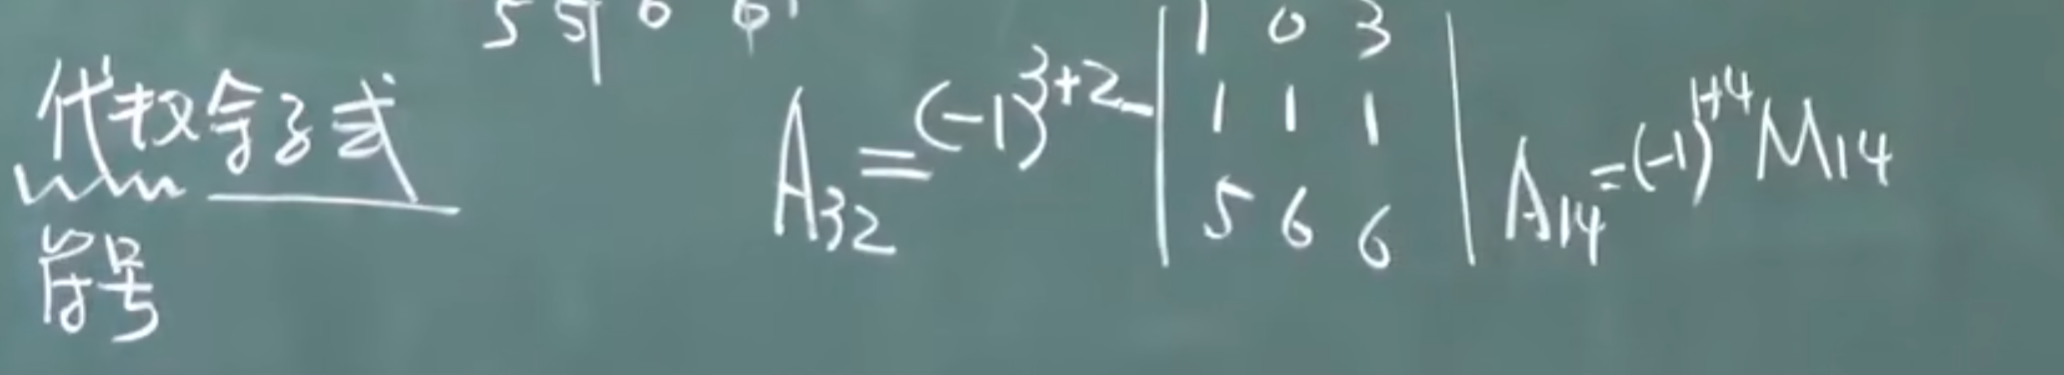 5 5 6 6
代数余子式
符号
A₃₂ = (-1)³⁺² | 1 0 3 |
| 1 1 1 |
| 5 6 6 |
A₁₄ = (-1)¹⁺⁴ M₁₄